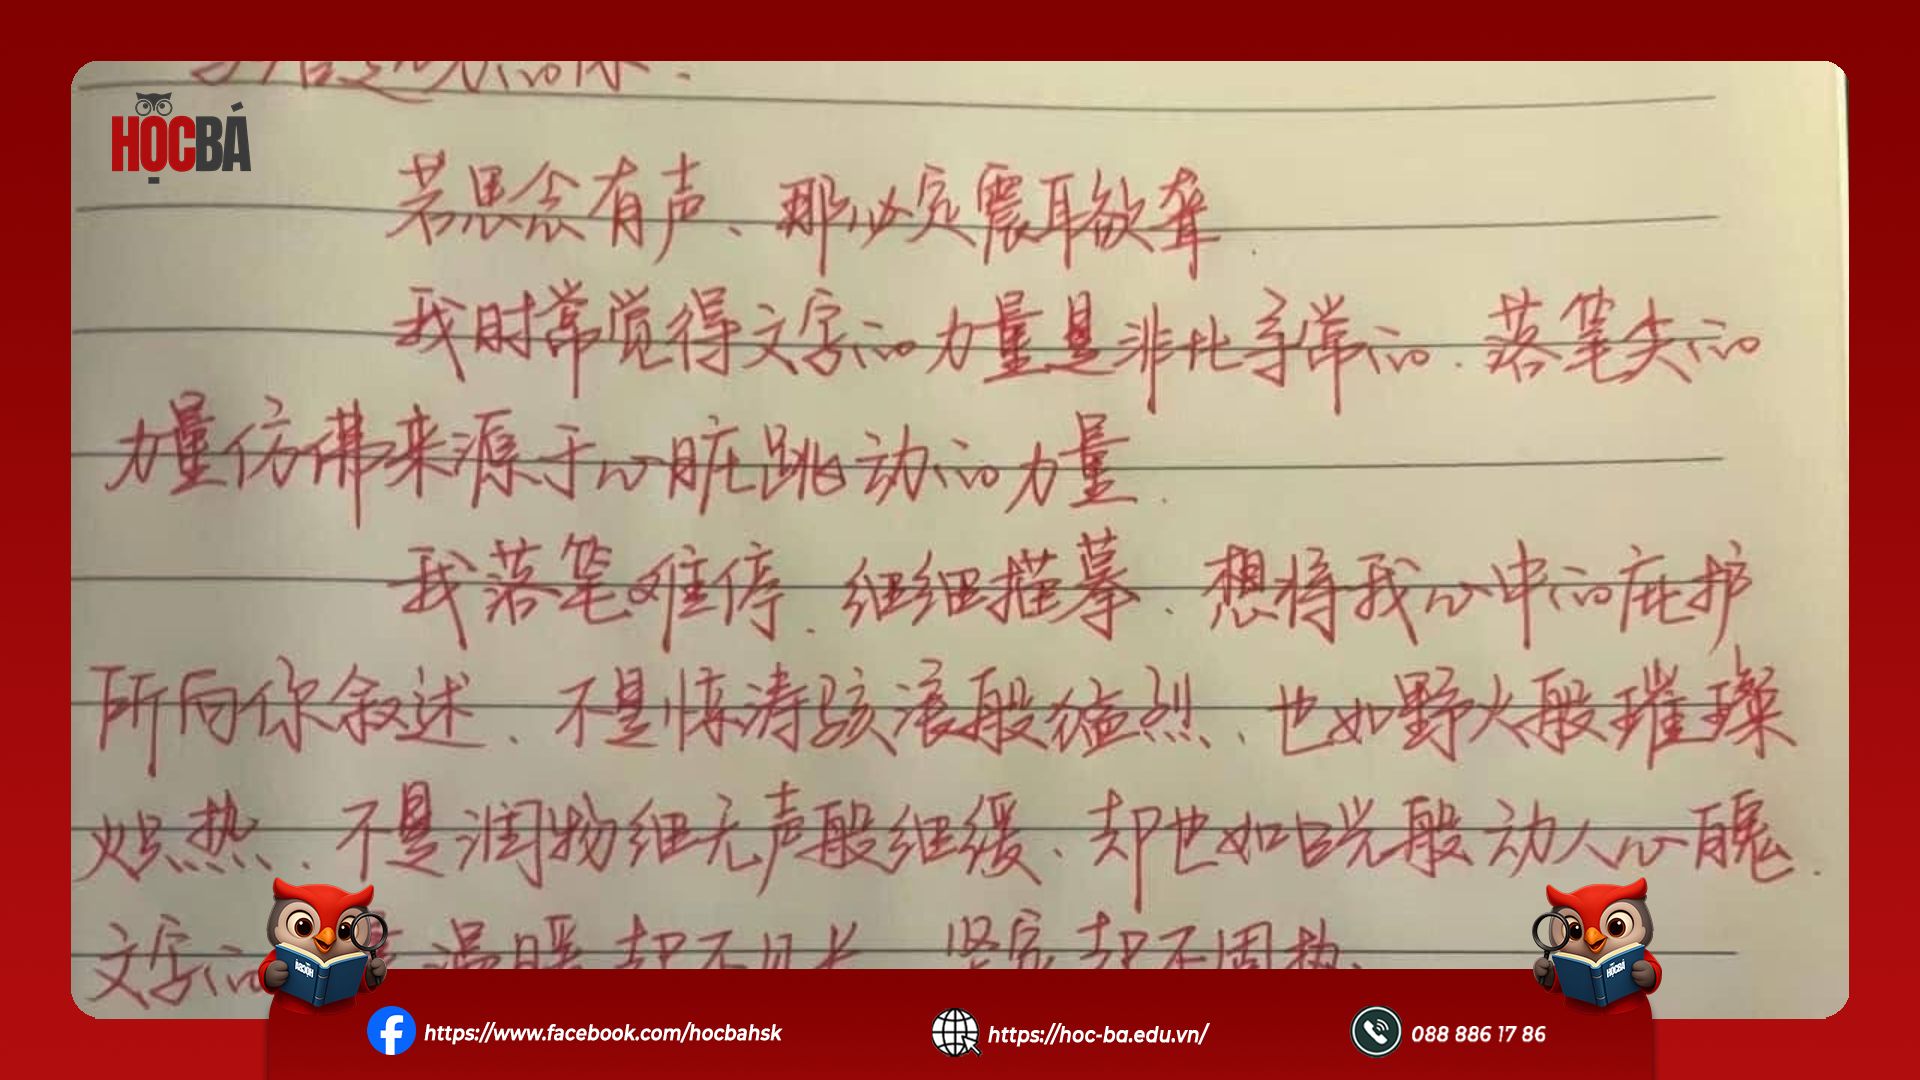 HỌCBÁ
若思念有声、那必定震耳欲聋.
我时常觉得文字的力量是非比寻常的.落笔尖的
力量仿佛来源于心脏跳动的力量.
我落笔难停.细细描摹.想将我心中的庇护
所向你叙述.不是惊涛骇浪般猛烈、也如野火般璀璨
炽热.不是润物细无声般细缓、却也如日光般动人心魄.
文字的 温暖却不
https://www.facebook.com/hocbahsk
https://hoc-ba.edu.vn/
088 886 17 86